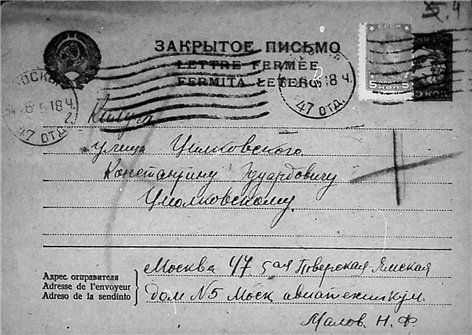 5.4
ЗАКРЫТОЕ ПИСЬМО
LETTRE FERMÉE
FERMITA LETERO
МОСКВА
18 Ч.
47 ОТД.
18 Ч.
47 ОТД.
СССР
5 КОП. 5
Калуга
улица Циолковского
Константину Эдуардовичу
Циолковскому.
Адрес отправителя
Adresse de l'envoyeur
Adreso de la sendinto
Москва 47 5ая Тверская Ямская
дом N5 Моск авиатехникум.
Малов. Н. Ф